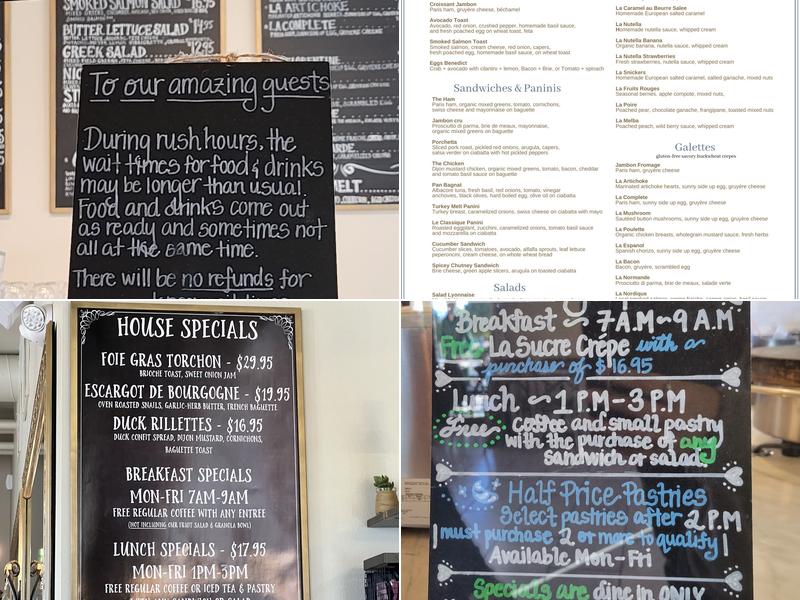 SMOKED SALMON SALAD $14.95
BUTTER LETTUCE SALAD
GREEK SALAD
LA ARTICHOKE
LA COMPLETE
To our amazing guests
During rush hours, the
wait times for food & drinks
may be longer than usual.
Food and drinks come out
as ready and sometimes not
all at the same time.
There will be no refunds for
Croissant Jambon
Paris ham, gruyère, béchamel
Avocado Toast
Avocado, red onion, crushed pepper, homemade basil sauce,
and fresh poached egg on wheat toast, feta
Smoked Salmon Toast
Smoked salmon, cream cheese, red onion, capers,
fresh poached egg, homemade basil sauce, on wheat toast
Eggs Benedict
Crab + avocado with cilantro + lemon, Bacon + Brie, or Tomato + Spinach
Sandwiches & Paninis
The Ham
Paris ham, organic mixed greens, tomato, cornichons,
swiss cheese and mayonnaise on baguette
Jambon cru
Prosciutto di parma, brie de meaux, mayonnaise,
organic mixed greens on baguette
Porchetta
Sliced pork roast, pickled red onions, arugula, capers,
salsa verde on ciabatta with hot pickled peppers
The Chicken
Dijon mustard chicken, organic mixed greens, tomato, bacon, cheddar
and tomato basil sauce on baguette
Pan Bagnat
Albacore tuna, fresh basil, red onions, tomato, vinegar
anchovies, black olives, hard boiled egg, olive oil on ciabatta
Turkey Melt Panini
Turkey breast, caramelized onions, swiss cheese on ciabatta with mayo
Le Classique Panini
Roasted eggplant, zucchini, caramelized onions, tomato basil sauce
and mozzarella on ciabatta
Cucumber Sandwich
Cucumber slices, tomatoes, avocado, alfalfa sprouts, leaf lettuce
peperoncini, cream cheese, on whole wheat bread
Spicey Chutney Sandwich
Brie cheese, green apple slicers, arugula on toasted ciabatta
Salads
Salad Lyonnaise
La Caramel au Beurre Salee
Homemade European salted caramel
La Nutella
Homemade nutella sauce, whipped cream
La Nutella Banana
Organic banana, nutella sauce, whipped cream
La Nutella Strawberries
Fresh strawberries, nutella sauce, whipped cream
La Snickers
Homemade European salted caramel, salted ganache, mixed nuts
La Fruits Rouges
Seasonal berries, apple compote, mixed nuts,
La Poire
Poached pear, chocolate ganache, frangipane, toasted mixed nuts
La Melba
Poached peach, wild berry sauce, whipped cream
Galettes
gluten-free savory buckwheat crepes
Jambon Fromage
Paris ham, gruyère cheese
La Artichoke
Marinated artichoke hearts, sunny side up egg, gruyère cheese
La Complete
Paris ham, sunny side up egg, gruyère cheese
La Mushroom
Sautéed button mushrooms, sunny side up egg, gruyère cheese
La Poulette
Organic chicken breasts, wholegrain mustard sauce, fresh herbs
La Espanol
Spanish chorizo, sunny side up egg, gruyère cheese
La Bacon
Bacon, gruyère, scrambled egg
La Normande
Prosciutto di parma, brie de meaux, salade verte
La Nordique
HOUSE SPECIALS
FOIE GRAS TORCHON - $29.95
BRIOCHE TOAST, SWEET ONION JAM
ESCARGOT DE BOURGOGNE - $19.95
OVEN ROASTED SNAILS, GARLIC-HERB BUTTER, FRENCH BAGUETTE
DUCK RILLETTES - $16.95
DUCK CONFIT SPREAD, DIJON MUSTARD, CORNICHONS,
BAGUETTE TOAST
BREAKFAST SPECIALS
MON-FRI 7AM-9AM
FREE REGULAR COFFEE WITH ANY ENTREE
(NOT INCLUDING OUR FRUIT SALAD & GRANOLA BOWL)
LUNCH SPECIALS - $17.95
MON-FRI 1PM-3PM
FREE REGULAR COFFEE OR ICED TEA & PASTRY
WITH ANY SANDWICH OR SALAD
Breakfast ~ 7A.M~9 A.M
Free La Sucre Crepe with a
purchase of $16.95
Lunch ~ 1 P.M-3 P.M
Free Coffee and small pastry
with the purchase of any
sandwich or salad
Half Price Pastries
Select pastries after 2 P.M
must purchase 2 or more to qualify
Available Mon-Fri
Specials are dine in ONLY